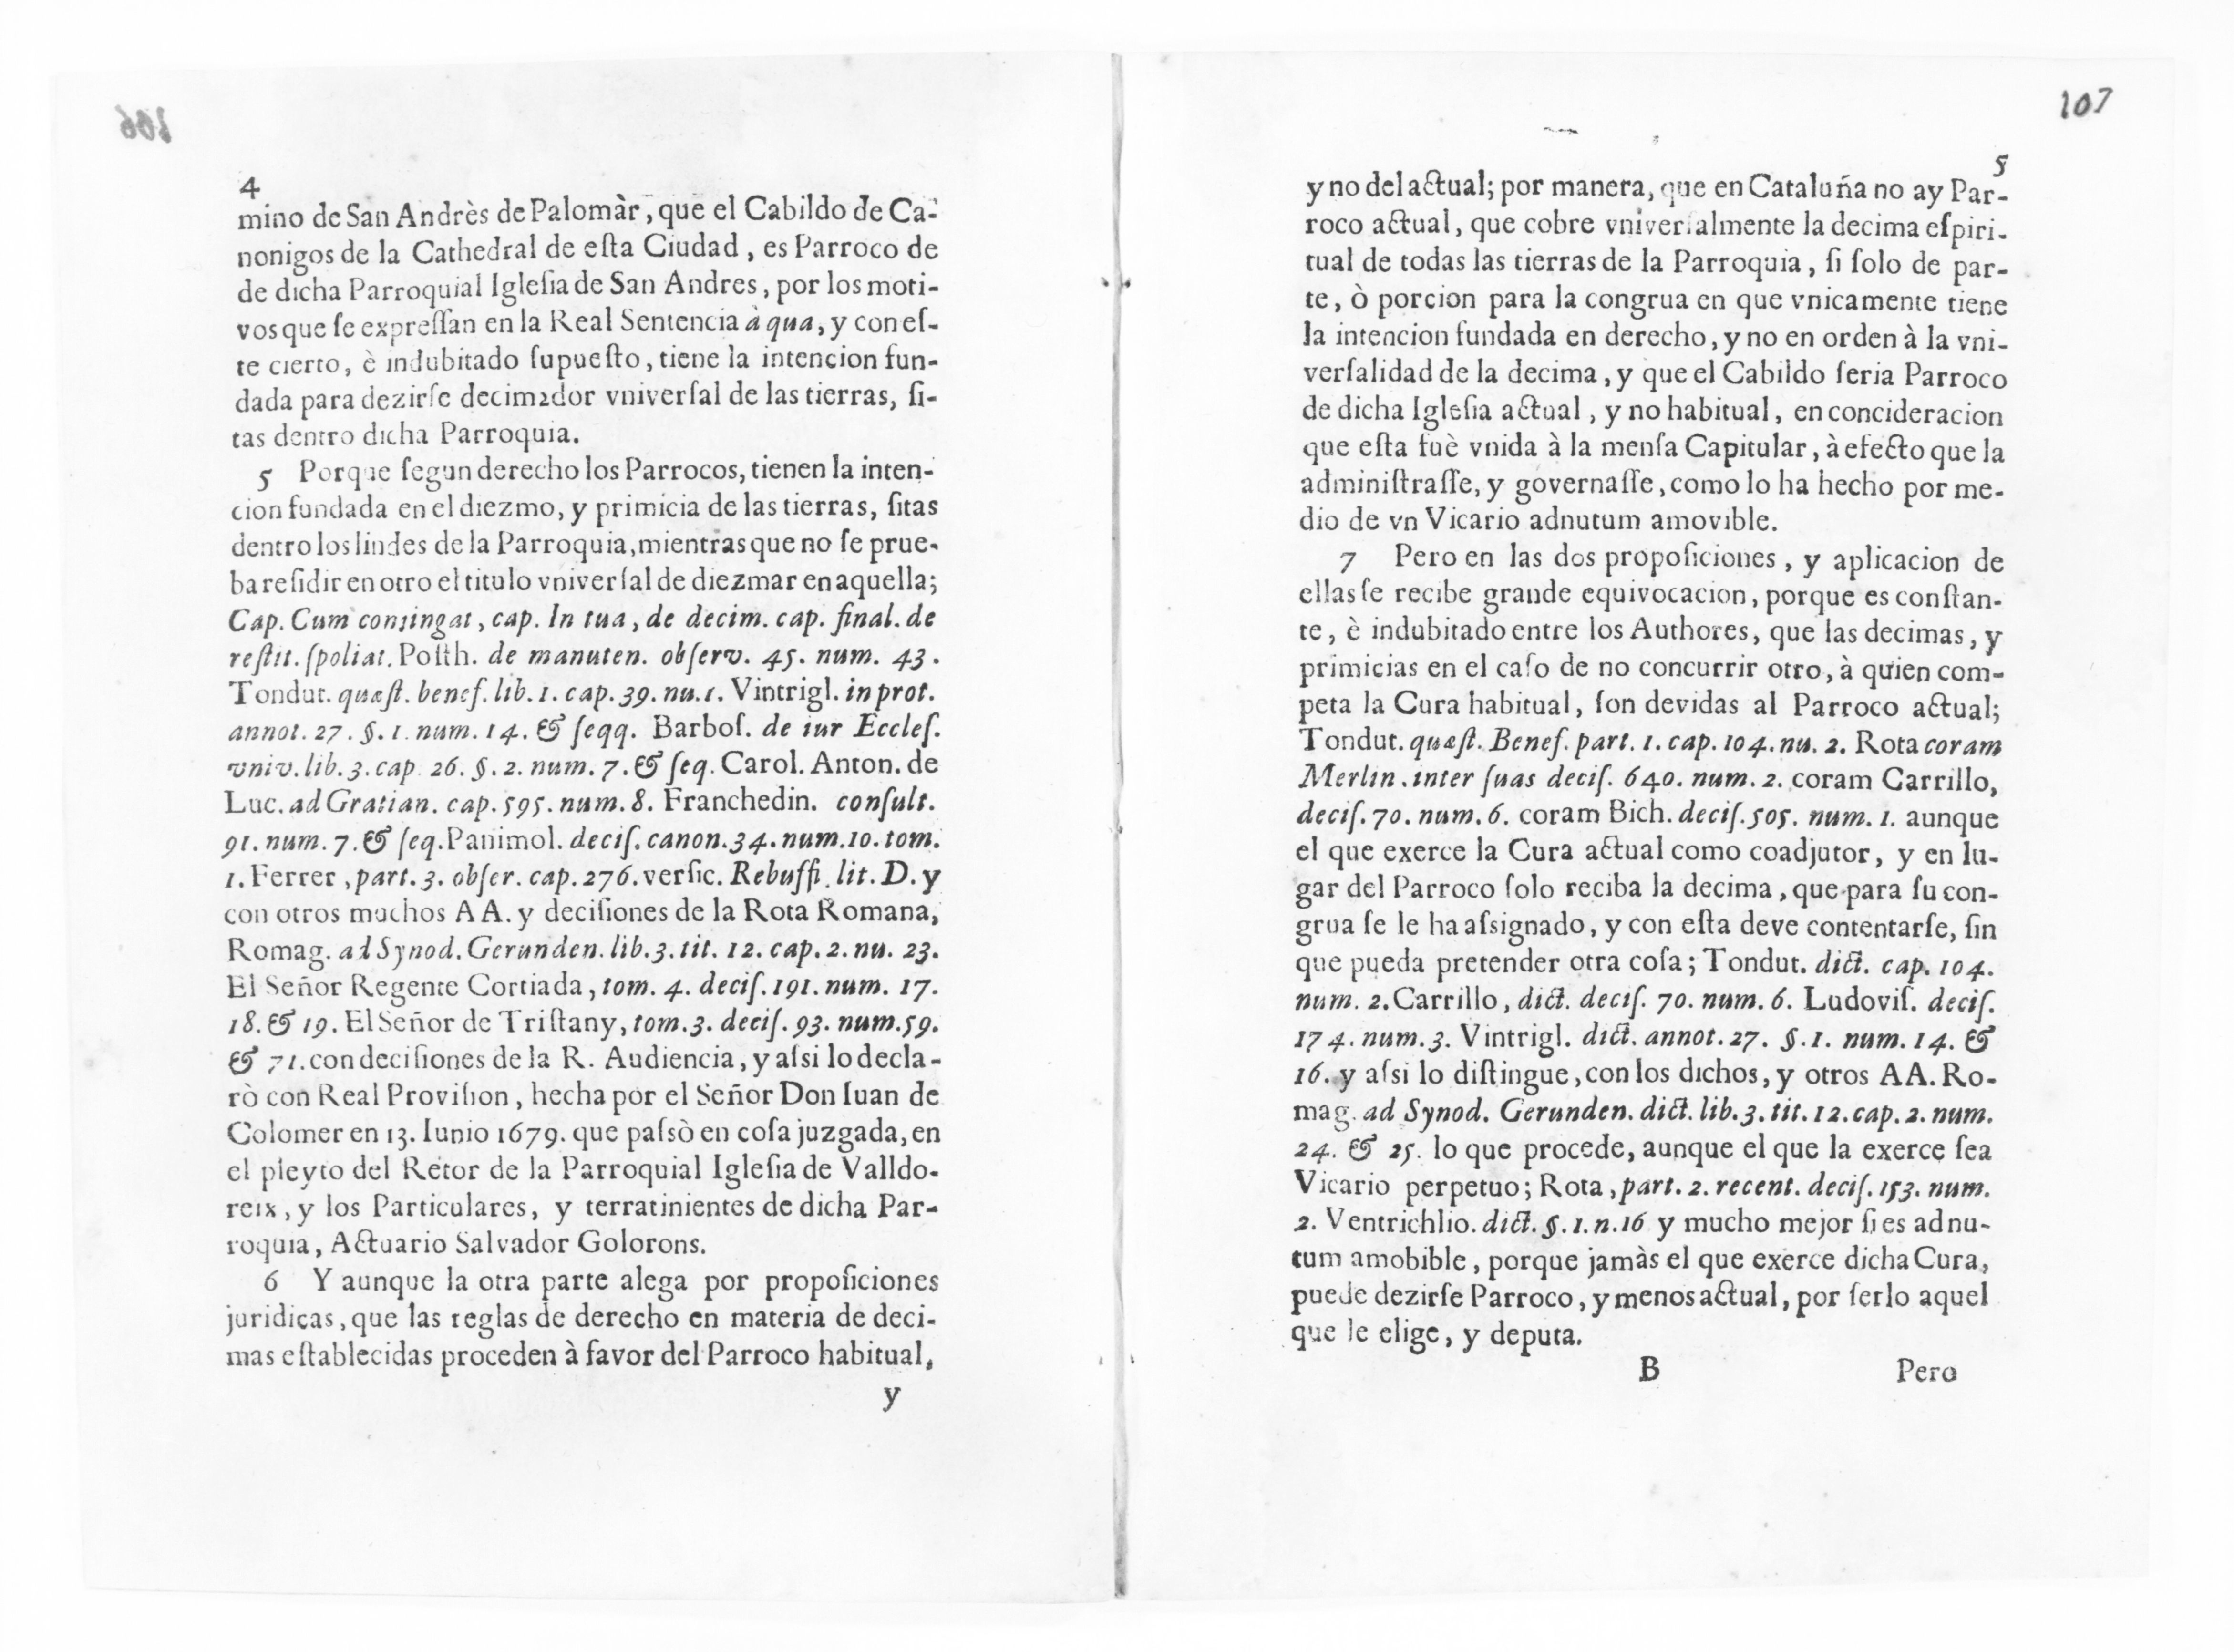 106
4
mino de San Andrès de Palomàr, que el Cabildo de Ca-
nonigos de la Cathedral de eſta Ciudad, es Parroco de
de dicha Parroquial Igleſia de San Andres, por los moti-
vos que ſe expreſſan en la Real Sentencia à qua, y con eſ-
te cierto, è indubitado ſupueſto, tiene la intencion fun-
dada para dezirſe decimador vniverſal de las tierras, ſi-
tas dentro dicha Parroquia.
5 Porque ſegun derecho los Parrocos, tienen la inten-
cion fundada en el diezmo, y primicia de las tierras, ſitas
dentro los lindes de la Parroquia, mientras que no ſe prue-
ba reſidir en otro el titulo vniverſal de diezmar en aquella;
Cap. Cum contingat, cap. In tua, de decim. cap. final. de
reſtit. ſpoliat. Poſth. de manuten. obſerv. 45. num. 43.
Tondut. quæſt. benef. lib. 1. cap. 39. nu. 1. Vintrigl. in prot.
annot. 27. §. 1. num. 14. & ſeqq. Barboſ. de iur Eccleſ.
univ. lib. 3. cap 26. §. 2. num. 7. & ſeq. Carol. Anton. de
Luc. ad Gratian. cap. 595. num. 8. Franchedin. conſult.
91. num. 7. & ſeq. Panimol. deciſ. canon. 34. num. 10. tom.
1. Ferrer, part. 3. obſer. cap. 276. verſic. Rebuffi. lit. D. y
con otros muchos AA. y deciſiones de la Rota Romana,
Romag. ad Synod. Gerunden. lib. 3. tit. 12. cap. 2. nu. 23.
El Señor Regente Cortiada, tom. 4. deciſ. 191. num. 17.
18. & 19. El Señor de Triſtany, tom. 3. deciſ. 93. num. 59.
& 71. con deciſiones de la R. Audiencia, y aſsi lo decla-
rò con Real Proviſion, hecha por el Señor Don Iuan de
Colomer en 13. Iunio 1679. que paſsò en coſa juzgada, en
el pleyto del Retor de la Parroquial Igleſia de Valldo-
reix, y los Particulares, y terratinientes de dicha Par-
roquia, Actuario Salvador Golorons.
6 Y aunque la otra parte alega por propoſiciones
juridicas, que las reglas de derecho en materia de deci-
mas eſtablecidas proceden à favor del Parroco habitual,
y
107
5
y no del actual; por manera, que en Cataluña no ay Par-
roco actual, que cobre vniverſalmente la decima eſpiri-
tual de todas las tierras de la Parroquia, ſi ſolo de par-
te, ò porcion para la congrua en que vnicamente tiene
la intencion fundada en derecho, y no en orden à la vni-
verſalidad de la decima, y que el Cabildo ſeria Parroco
de dicha Igleſia actual, y no habitual, en concideracion
que eſta fuè vnida à la menſa Capitular, à efecto que la
adminiſtraſſe, y governaſſe, como lo ha hecho por me-
dio de vn Vicario adnutum amovible.
7 Pero en las dos propoſiciones, y aplicacion de
ellas ſe recibe grande equivocacion, porque es conſtan-
te, è indubitado entre los Authores, que las decimas, y
primicias en el caſo de no concurrir otro, à quien com-
peta la Cura habitual, ſon devidas al Parroco actual;
Tondut. quæſt. Benef. part. 1. cap. 104. nu. 2. Rota coram
Merlin. inter ſuas deciſ. 640. num. 2. coram Carrillo,
deciſ. 70. num. 6. coram Bich. deciſ. 505. num. 1. aunque
el que exerce la Cura actual como coadjutor, y en lu-
gar del Parroco ſolo reciba la decima, que para ſu con-
grua ſe le ha aſsignado, y con eſta deve contentarſe, ſin
que pueda pretender otra coſa; Tondut. dict. cap. 104.
num. 2. Carrillo, dict. deciſ. 70. num. 6. Ludoviſ. deciſ.
174. num. 3. Vintrigl. dict. annot. 27. §. 1. num. 14. &
16. y aſsi lo diſtingue, con los dichos, y otros AA. Ro-
mag. ad Synod. Gerunden. dict. lib. 3. tit. 12. cap. 2. num.
24. & 25. lo que procede, aunque el que la exerce ſea
Vicario perpetuo; Rota, part. 2. recent. deciſ. 153. num.
2. Ventrichlio. dict. §. 1. n. 16 y mucho mejor ſi es adnu-
tum amobible, porque jamàs el que exerce dicha Cura,
puede dezirſe Parroco, y menos actual, por ſerlo aquel
que le elige, y deputa.
B Pero